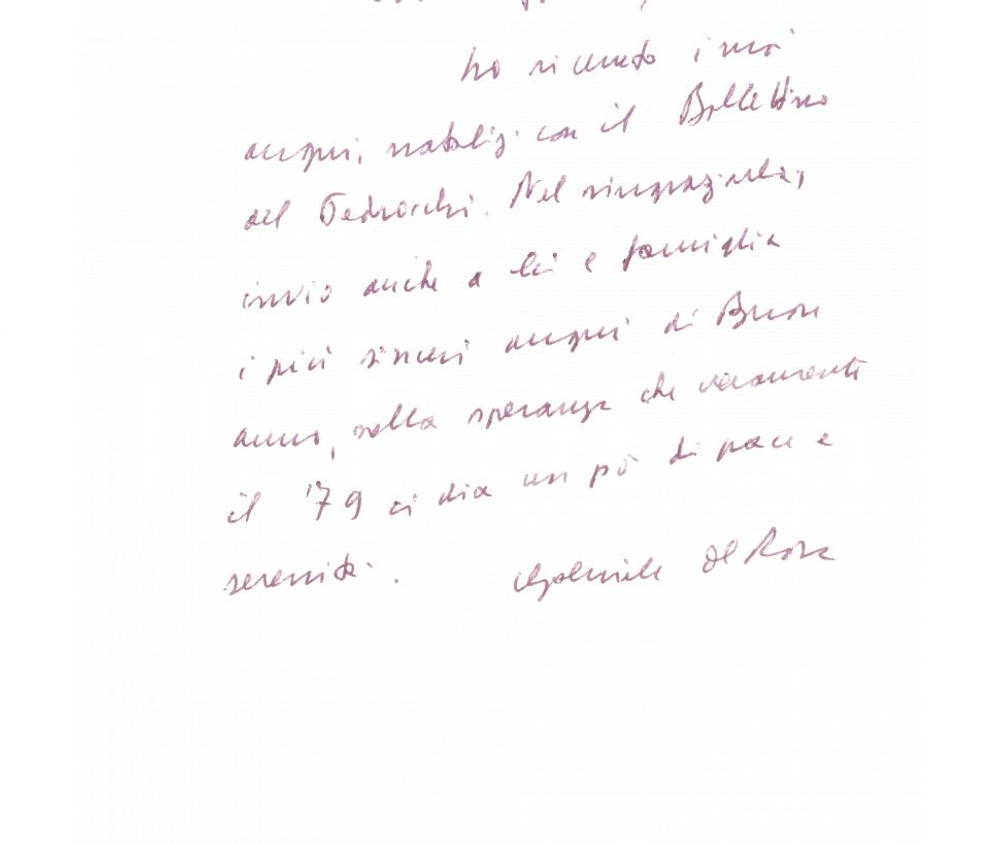 ho ricevuto i suoi
auguri natalizi con il Bollettino
del Pedrocchi. Nel ringraziarla,
invio anche a lei e famiglia
i più sinceri auguri di Buon
anno, nella speranza che veramente
il '79 ci dia un pò di pace e
serenità. Gabriele de Rosa